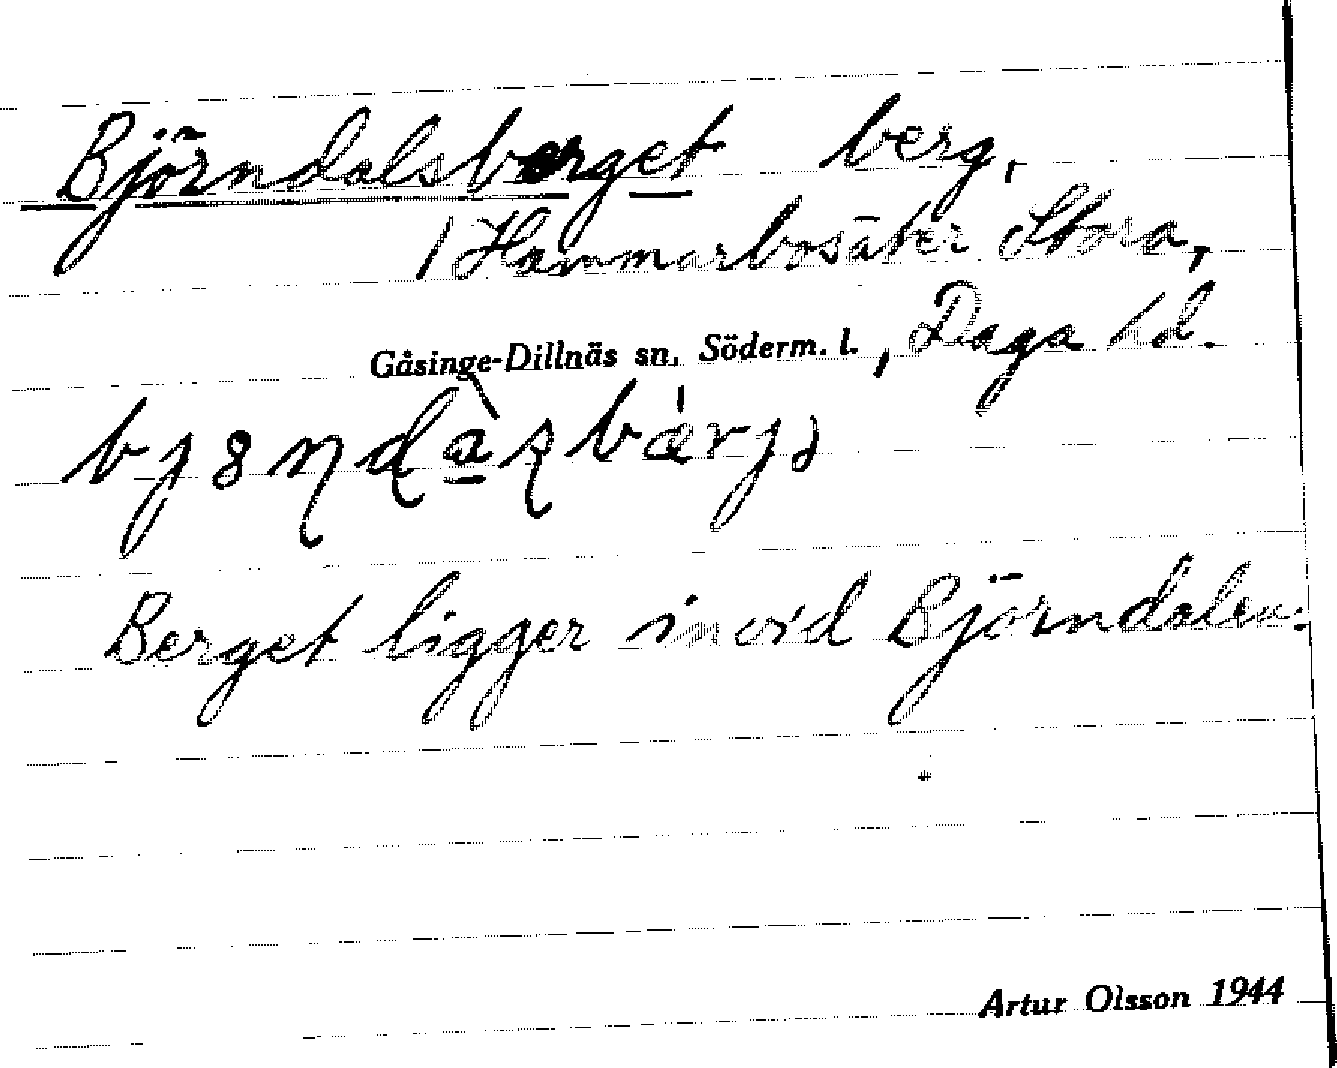 Björndalsberget berg,
/ Hammarbosäter Stora,
Gåsinge-Dillnäs sn, Söderm. l., Daga hd.
Berget ligger invid Björndalen.
Artur Olsson 1944